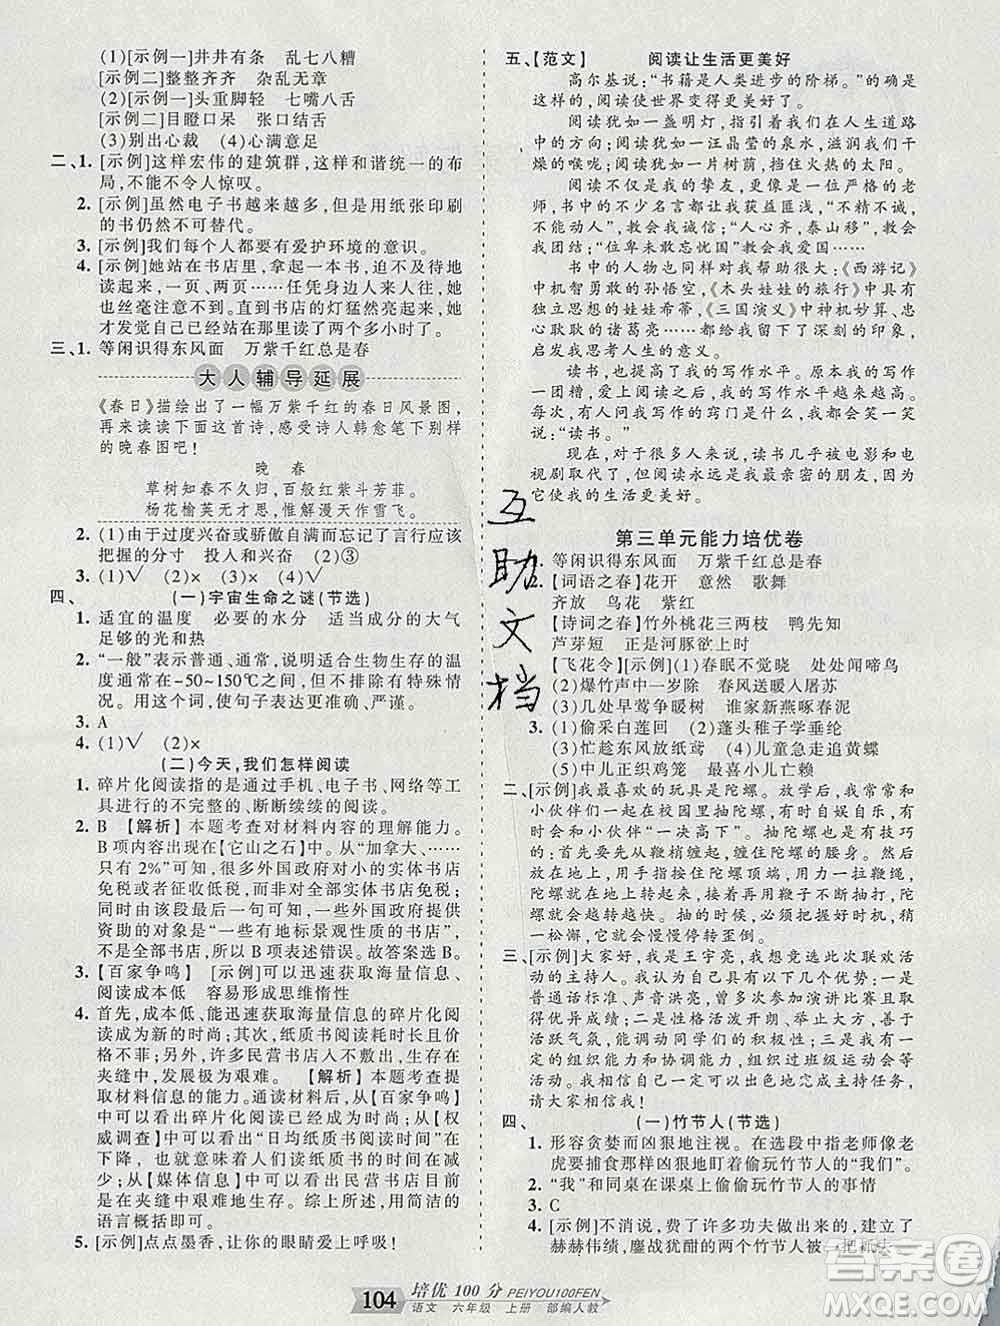 (1)[示例一]井井有条 乱七八糟
[示例二]整整齐齐 杂乱无章
(2)[示例一]头重脚轻 七嘴八舌
[示例二]目瞪口呆 张口结舌
(3)别出心裁 (4)心满意足
二、1. [示例]这样宏伟的建筑群,这样和谐统一的布
局,不能不令人惊叹。
2. [示例]虽然电子书越来越多,但是用纸张印刷
的书仍然不可替代。
3. [示例]我们每个人都要有爱护环境的意识。
4. [示例]她站在书店里,拿起一本书,迫不及待地
读起来,一页、两页……任凭身边人来人往,她
也丝毫注意不到。直到书店的灯猛然亮起来,她
才发觉自己已经站在那里读了两个多小时了。
三、1. 等闲识得东风面 万紫千红总是春
大人辅导延展
《春日》描绘出了一幅万紫千红的春日风景图,
再来读读下面这首诗,感受诗人韩愈笔下别样的
晚春图吧!
晚 春
草树知春不久归,百般红紫斗芳菲。
杨花榆荚无才思,惟解漫天作雪飞。
2. (1)由于过度兴奋或骄傲自满而忘记了言行应该
把握的分寸 投入和兴奋 (2)③
3. (1)√ (2)× (3)√
四、 (一)宇宙生命之谜(节选)
1. 适宜的温度 必要的水分 适当成分的大气
足够的光和热
2. “一般”表示普通、通常,说明适合生物生存的温
度通常在-50~150℃之间,但不排除有特殊情
况。用这个词,使句子表达准确、严谨。
3. A
4. (1)√ (2)×
(二)今天,我们怎样阅读
1. 碎片化阅读指的是通过手机、电子书、网络等工
具进行的不完整的、断断续续的阅读。
2. B 【解析】本题考查对材料内容的理解能力。
B项内容出自【它山之石】中。从“加拿大、……
只有2%”可知,很多外国政府对小的实体书店
免税或者还有些国家对全部实体书店免税。
同时由该段最后一句可知,一些外国政府提供
资助的对象是“一些有地标景观性质的书店”,
不是全部书店,所以B项表述错误。故答案选B。
3. 【百家争鸣】 [示例]迅速获取海量信息、
阅读成本低 容易形成思维惰性
4. 首先,成本低、能迅速获取海量信息的碎片化阅
读成为新的时尚;其次,纸质书阅读耗时长且成
本高;另外,许多民营书店在电商和房租上涨的
夹缝中,发展极为艰难。 【解析】本题考查提取
材料信息的能力。从【百家争鸣】
中可以看出碎片化阅读已经成为时尚;从【权
威调查】中可以看出“日均纸质书阅读时长在
下降,也就是说读纸质书的人越来越少了”;
从【媒体信息】中可以看出许多民营书店
在夹缝中艰难地生存。综上所述,用简洁的
语言概括即可。
5. [示例]点点墨香,让你的眼睛爱上呼吸!
五、【范文】 阅读让生活更美好
高尔基说:“书籍是人类进步的阶梯。”的确是
这样的,阅读使世界变得更美好了。
阅读犹如一盏明灯,指引着我在人生道路
中的方向;阅读犹如一汪晶莹的泉水,滋润我干
燥的喉咙;阅读犹如一片树荫,挡住火热的太阳。
阅读不仅是我的挚友,更是一位严格的老
师,书中的不少名言都让我获益匪浅,“不精不诚,
不能动人”,教会我诚信;“人心齐,泰山移”,教会
我团结;“位卑未敢忘忧国”教会我爱国……
书中的人物也同样对我帮助很大:《西游记》
中机智勇敢的孙悟空,《木头娃娃的旅行》中具有
独立思想的娃娃希蒂,《三国演义》中神机妙算、忠
心耿耿的诸葛亮……都给我留下了深刻的印象,
启示我人生的意义。
读书,也提高了我的写作水平。原本我的写作水平
一团糟,爱上阅读之后,我的写作水平提高了很多。
每次,有人问我写作的窍门是什么,我都会笑一笑
说:“读书。”
现在,随着科技的发达,读书几乎被电影和电
视剧取代了,但阅读永远是我最亲密的朋友,因为
它使我的生活更美好。
第三单元能力培优卷
等闲识得东风面 万紫千红总是春
2. 【词语之春】花开 意然 歌舞
齐放 鸟花 紫红
【诗词之春】竹外桃花三两枝 鸭先知
芦芽短 正是河豚欲上时
【飞花令】[示例](1)春眠不觉晓 处处闻啼鸟
(2)爆竹声中一岁除 春风送暖入屠苏
(3)几处早莺争暖树 谁家新燕啄春泥
3. (1)偷采白莲回 (2)蓬头稚子学垂纶
(3)忙趁东风放纸鸢 (4)儿童急走追黄蝶
(5)中儿正织鸡笼 最喜小儿亡赖
二、[示例]我最喜欢的玩具是陀螺。放学后,我常和
小伙伴们一起在校园里抽陀螺,有时自娱自乐,有
时会和小伙伴“一决高下”。抽陀螺也是有技巧
的:首先从鞭梢缠起,缠住陀螺的腰身。然后,
放在地上,用手扶住陀螺顶端,猛一拉鞭绳,
陀螺就在地上旋转起来,再挥动鞭子不断抽打,陀
螺会越转越快。抽的时候,必须掌握好时机。稍
一松懈,它就会慢慢停转下来。
三、[示例]大家好,我是王宇亮,我想竞选此次联欢活
动的主持人。我认为自己有以下几个优势:一是
普通话标准、声音洪亮,曾多次参加演讲比赛并获
得优异成绩;二是性格活泼开朗、举止大方,善于
活跃气氛,能调动同学们的积极性;三是具有一
定的组织能力和协调能力,多次组织过班级运动会等
活动。我相信自己有能力胜任主持人这个工作,
请大家相信我!
四、 (一)竹节人(节选)
1. 形容贪婪而凶狠地注视。在选段中指老师像老
虎要捕食般凶狠地盯着偷玩竹节人的“我们”。
2. “我”和同桌在课桌上偷偷玩竹节人的事情
3. C
4. [示例]不消说,费了许多功夫做出来的,建立了
赫赫伟绩,鏖战犹酣的两个竹节人被一把抓去
互助文档
答案圈
MXQE.COM
104 培优100分 PEIYOU100FEN
语文 六年级 上册 部编人教